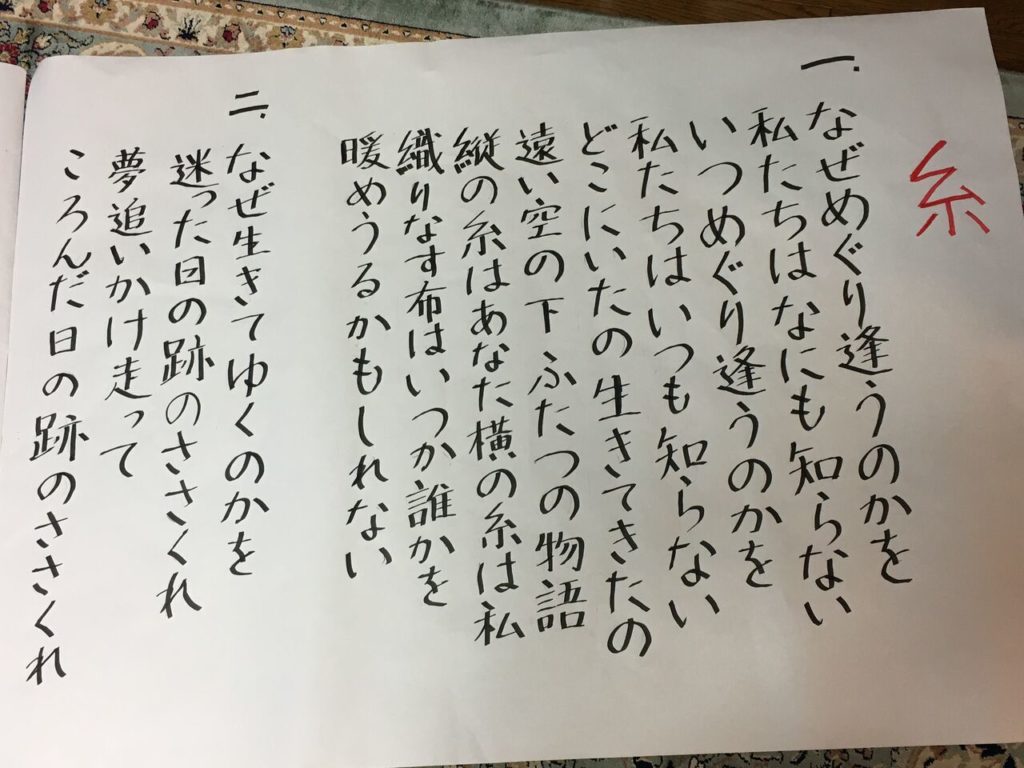 糸
一、なぜめぐり逢うのかを
私たちはなにも知らない
いつめぐり逢うのかを
私たちはいつも知らない
どこにいたの生きてきたの
遠い空の下 ふたつの物語
縦の糸はあなた横の糸は私
織りなす布はいつか誰かを
暖めうるかもしれない
二、なぜ生きてゆくのかを
迷った日の跡のささくれ
夢追いかけ走って
ころんだ日の跡のささくれ